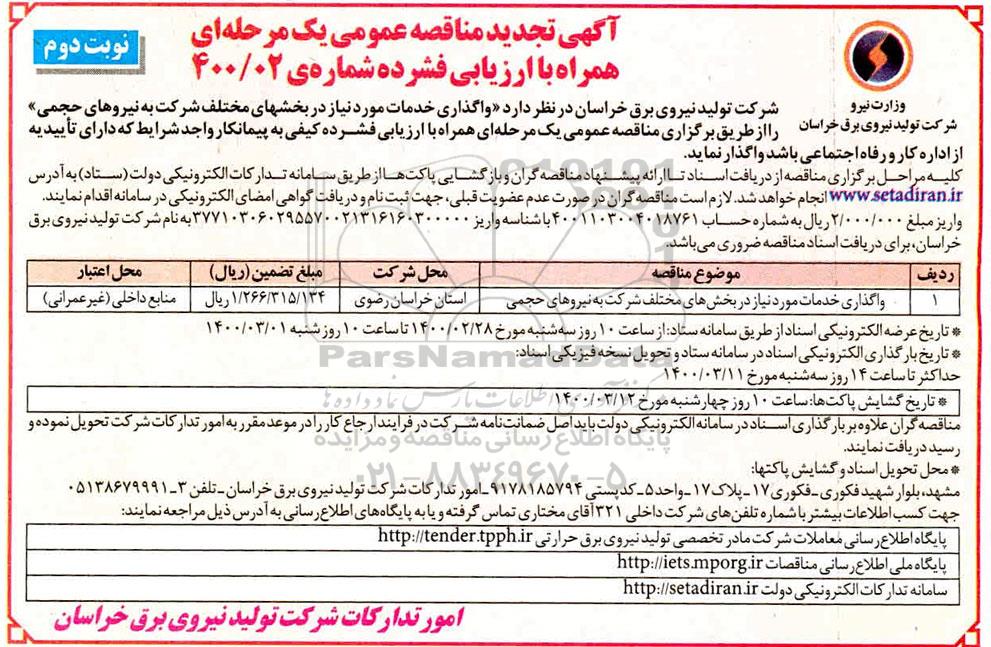 آگهی تجدید مناقصه عمومی یک مرحله‌ای
همراه با ارزیابی فشرده شماره‌ی ۴۰۰/۰۲
نوبت دوم
وزارت نیرو
شرکت تولید نیروی برق خراسان
شرکت تولید نیروی برق خراسان در نظر دارد «واگذاری خدمات مورد نیاز در بخشهای مختلف شرکت به نیروهای حجمی»
را از طریق برگزاری مناقصه عمومی یک مرحله‌ای همراه با ارزیابی فشرده کیفی به پیمانکار واجد شرایط که دارای تأییدیه
از اداره کار و رفاه اجتماعی باشد واگذار نماید.
کلیه مراحل برگزاری مناقصه از دریافت اسناد تا ارائه پیشنهاد مناقصه گران و بازگشایی پاکت‌ها از طریق سامانه تدارکات الکترونیکی دولت (ستاد) به آدرس
www.setadiran.ir انجام خواهد شد. لازم است مناقصه گران در صورت عدم عضویت قبلی، جهت ثبت نام و دریافت گواهی امضای الکترونیکی در سامانه اقدام نمایند.
واریز مبلغ ۲/۰۰۰/۰۰۰ ریال به شماره حساب ۴۰۰۱۱۰۳۰۰۴۰۱۸۷۶۱ با شناسه واریز ۳۷۷۱۰۳۰۶۰۲۹۵۵۷۰۰۲۱۳۱۶۱۶۰۳۰۰۰۰۰ به نام شرکت تولید نیروی برق
خراسان، برای دریافت اسناد مناقصه ضروری می‌باشد.
ردیف موضوع مناقصه محل شرکت مبلغ تضمین (ریال) محل اعتبار
۱ واگذاری خدمات مورد نیاز در بخش های مختلف شرکت به نیروهای حجمی استان خراسان رضوی ۱/۲۶۶/۳۱۵/۱۳۴ ریال منابع داخلی (غیر عمرانی)
* تاریخ عرضه الکترونیکی اسناد از طریق سامانه ستاد: از ساعت ۱۰ روز سه‌شنبه مورخ ۱۴۰۰/۰۲/۲۸ تا ساعت ۱۰ روز شنبه ۱۴۰۰/۰۳/۰۱
* تاریخ بارگذاری الکترونیکی اسناد در سامانه ستاد و تحویل نسخه فیزیکی اسناد:
حداکثر تا ساعت ۱۴ روز سه‌شنبه مورخ ۱۴۰۰/۰۳/۱۱
* تاریخ گشایش پاکت‌ها: ساعت ۱۰ روز چهارشنبه مورخ ۱۴۰۰/۰۳/۱۲
مناقصه گران علاوه بر بارگذاری اسناد در سامانه الکترونیکی دولت باید اصل ضمانت‌نامه شرکت در فرایند ارجاع کار را در موعد مقرر به امور تدارکات شرکت تحویل نموده و
رسید دریافت نمایند.
* محل تحویل اسناد و گشایش پاکتها:
مشهد، بلوار شهید فکوری - فکوری ۱۷ - پلاک ۱۷ - واحد ۵ - کدپستی ۹۱۷۸۱۸۵۷۹۴ - امور تدارکات شرکت تولید نیروی برق خراسان - تلفن ۳-۰۵۱۳۸۶۷۹۹۹۱
جهت کسب اطلاعات بیشتر با شماره تلفن های شرکت داخلی ۳۲۱ آقای مختاری تماس گرفته و یا به پایگاه‌های اطلاع رسانی به آدرس ذیل مراجعه نمایند:
پایگاه اطلاع رسانی معاملات شرکت مادر تخصصی تولید نیروی برق حرارتی http://tender.tpph.ir
پایگاه ملی اطلاع رسانی مناقصات http://iets.mporg.ir
سامانه تدارکات الکترونیکی دولت http://setadiran.ir
امور تدارکات شرکت تولید نیروی برق خراسان
ParsNamadData
پایگاه اطلاع رسانی مناقصه و مزایده
۰۲۱-۸۸۳۴۹۶۷۰-۵